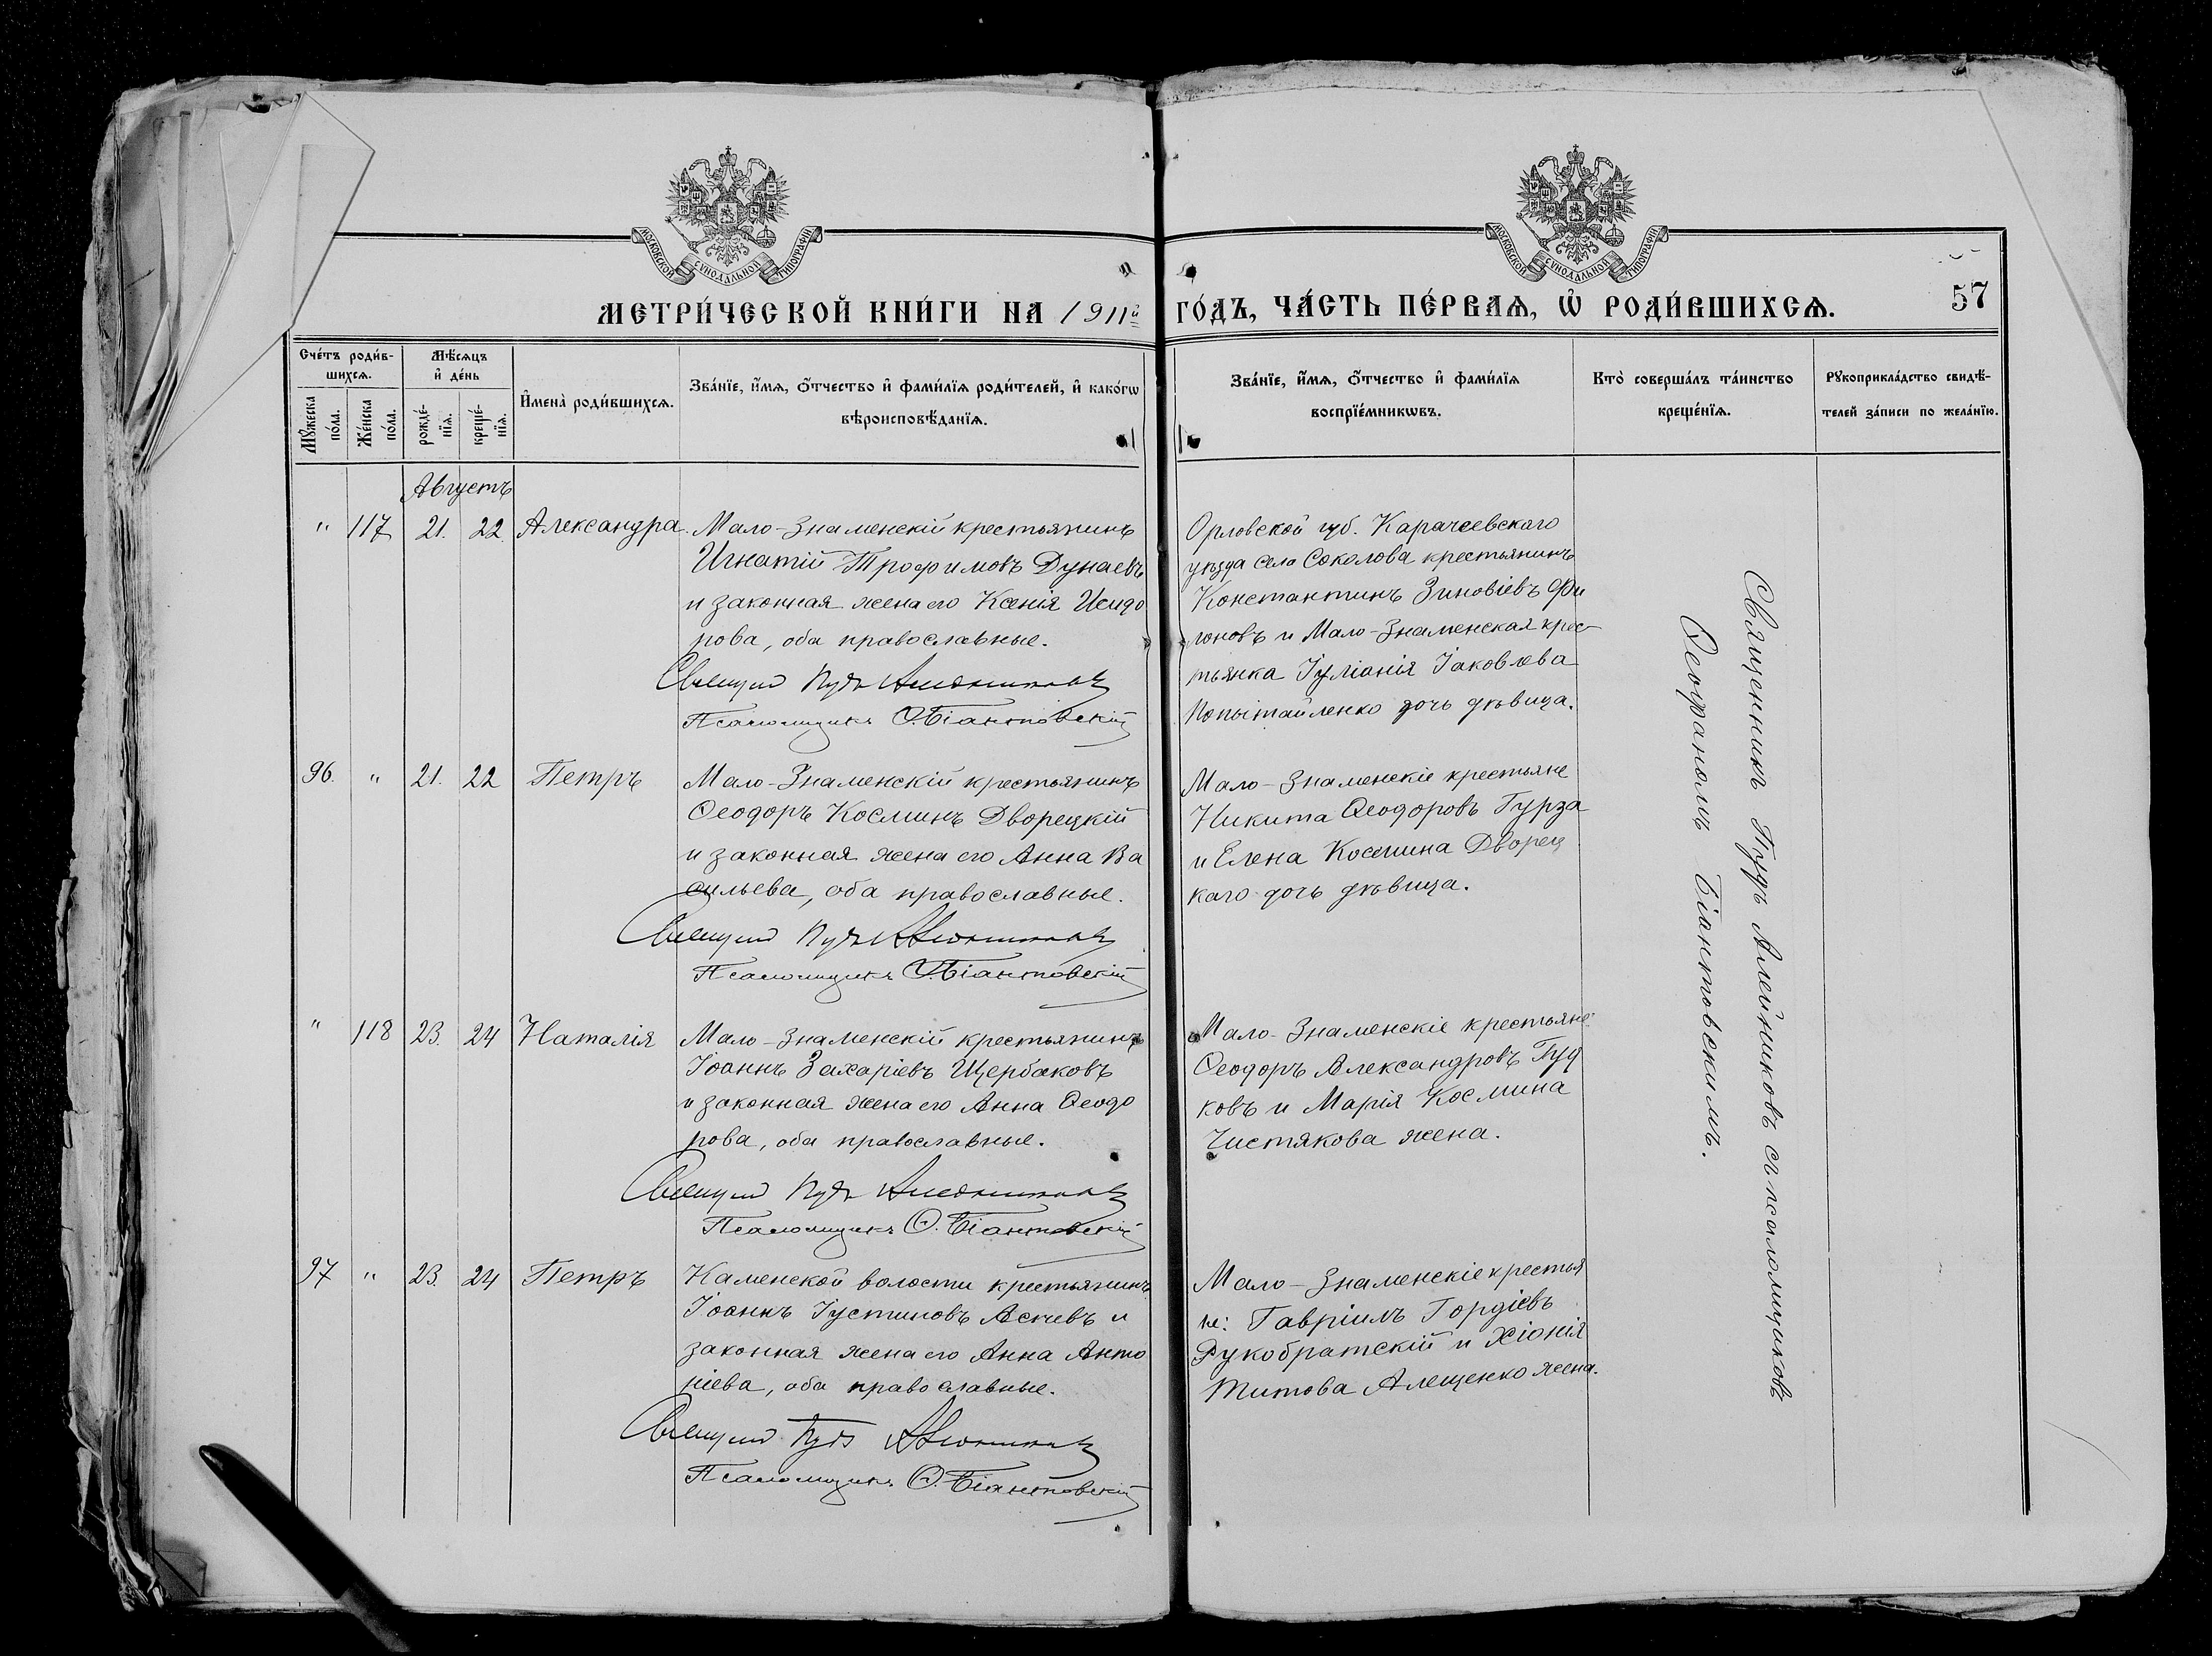 МОСКОВСКОЙ СѴНОДАЛЬНОЙ ТИПОГРАФІИ
МОСКОВСКОЙ СѴНОДАЛЬНОЙ ТИПОГРАФІИ
МЕТРИ́ЧЕСКОЙ КНИ́ГИ НА 1911й ГО́ДЪ, ЧА́СТЬ ПЕ́РВАѦ, Ѡ҆ РОДИ́ВШИХСѦ.
57
Сче́тъ роди́в-
шихсѧ.
Мꙋ́жеска по́ла.
Же́нска по́ла.
Мѣ́сѧцъ
и҆ де́нь
рожде́-
нїѧ.
креще́-
нїѧ.
И҆мена̀ роди́вшихсѧ.
Зва́нїе, и҆́мѧ, ѻ҆́тчество и҆ фами́лїѧ роди́телей, и҆ како́гѡ
вѣроисповѣ́данїѧ.
Зва́нїе, и҆́мѧ, ѻ҆́тчество и҆ фами́лїѧ
воспрїе́мникѡвъ.
Кто̀ соверша́лъ та́инство
креще́нїѧ.
Рꙋкоприкла́дство свидѣ́-
телей за́писи по жела́нїю.
Августъ
" 117 21. 22. Александра.
Мало-Знаменскій крестьянинъ
Игнатій Трофимовъ Дунаевъ
и законная жена его Ксенія Исидо
рова, оба православные.
Священ Пудъ Алейниковъ
Псаломщикъ Ѳ. Біантовскій
Орловской губ. Карачевского
уѣзда села Соколова крестьянинъ
Константинъ Зиновіевъ Фи
лоновъ и Мало-Знаменская крес-
тьянка Іуліанія Іаковлева
Попытайленко дочь дѣвица.
96. " 21. 22 Петръ
Мало-Знаменскій крестьянинъ
Ѳеодоръ Косминъ Дворецкій
и законная жена его Анна Ва
сильева, оба православные.
Священ Пудъ Алейниковъ
Псаломщикъ Ѳ. Біантовскій
Мало-Знаменскіе крестьяне
Никита Ѳеодоровъ Гурза
и Елена Космина Дворец
каго дочь дѣвица.
" 118 23. 24 Наталія
Мало-Знаменскій крестьянинъ
Іоаннъ Захаріевъ Щербаковъ
и законная жена его Анна Ѳеодо
рова, оба православные.
Священ Пудъ Алейниковъ
Псаломщикъ Ѳ. Біантовскій
Мало-Знаменскіе крестьяне
Ѳеодоръ Александровъ Гуд
ковъ и Марія Космина
Чистякова жена.
97 " 23. 24 Петръ
Каменской волости крестьянинъ
Іоаннъ Іустиновъ и
законная жена его Анна Анто
ніева, оба православные.
Священ Пудъ Алейниковъ
Псаломщикъ Ѳ. Біантовскій
Мало-Знаменскіе крестья
не: Гавріилъ Гордіевъ
Рукобратскій и Хіонія
Титова Алещенко жена.
Священникъ Пудъ Алейниковъ съ псаломщиковъ
Ѳеофаномъ Біантовскимъ.